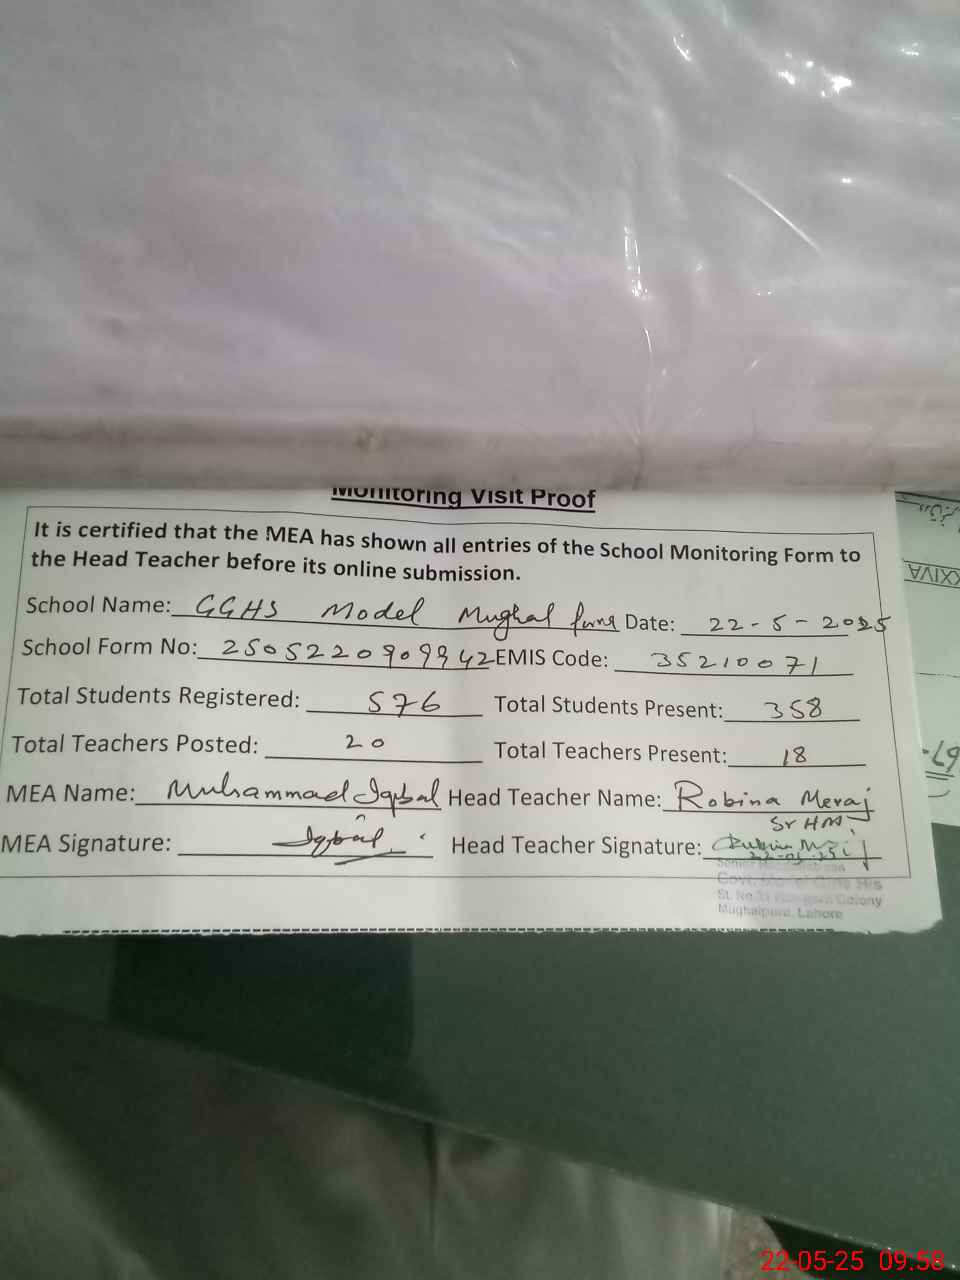 Monitoring Visit Proof
It is certified that the MEA has shown all entries of the School Monitoring Form to
the Head Teacher before its online submission.
School Name: GGHS Model Mughal Date: 22-5-2025
School Form No: 2505220909942 EMIS Code: 35210071
Total Students Registered: 576 Total Students Present: 358
Total Teachers Posted: 20 Total Teachers Present: 18
MEA Name: Muhammad Iqbal Head Teacher Name: Robina Meraj
Sr HM
MEA Signature: Iqbal Head Teacher Signature:
22-05-25
Colony
Mughalpura, Lahore
XXIVA
67-
22-05-25 09.58